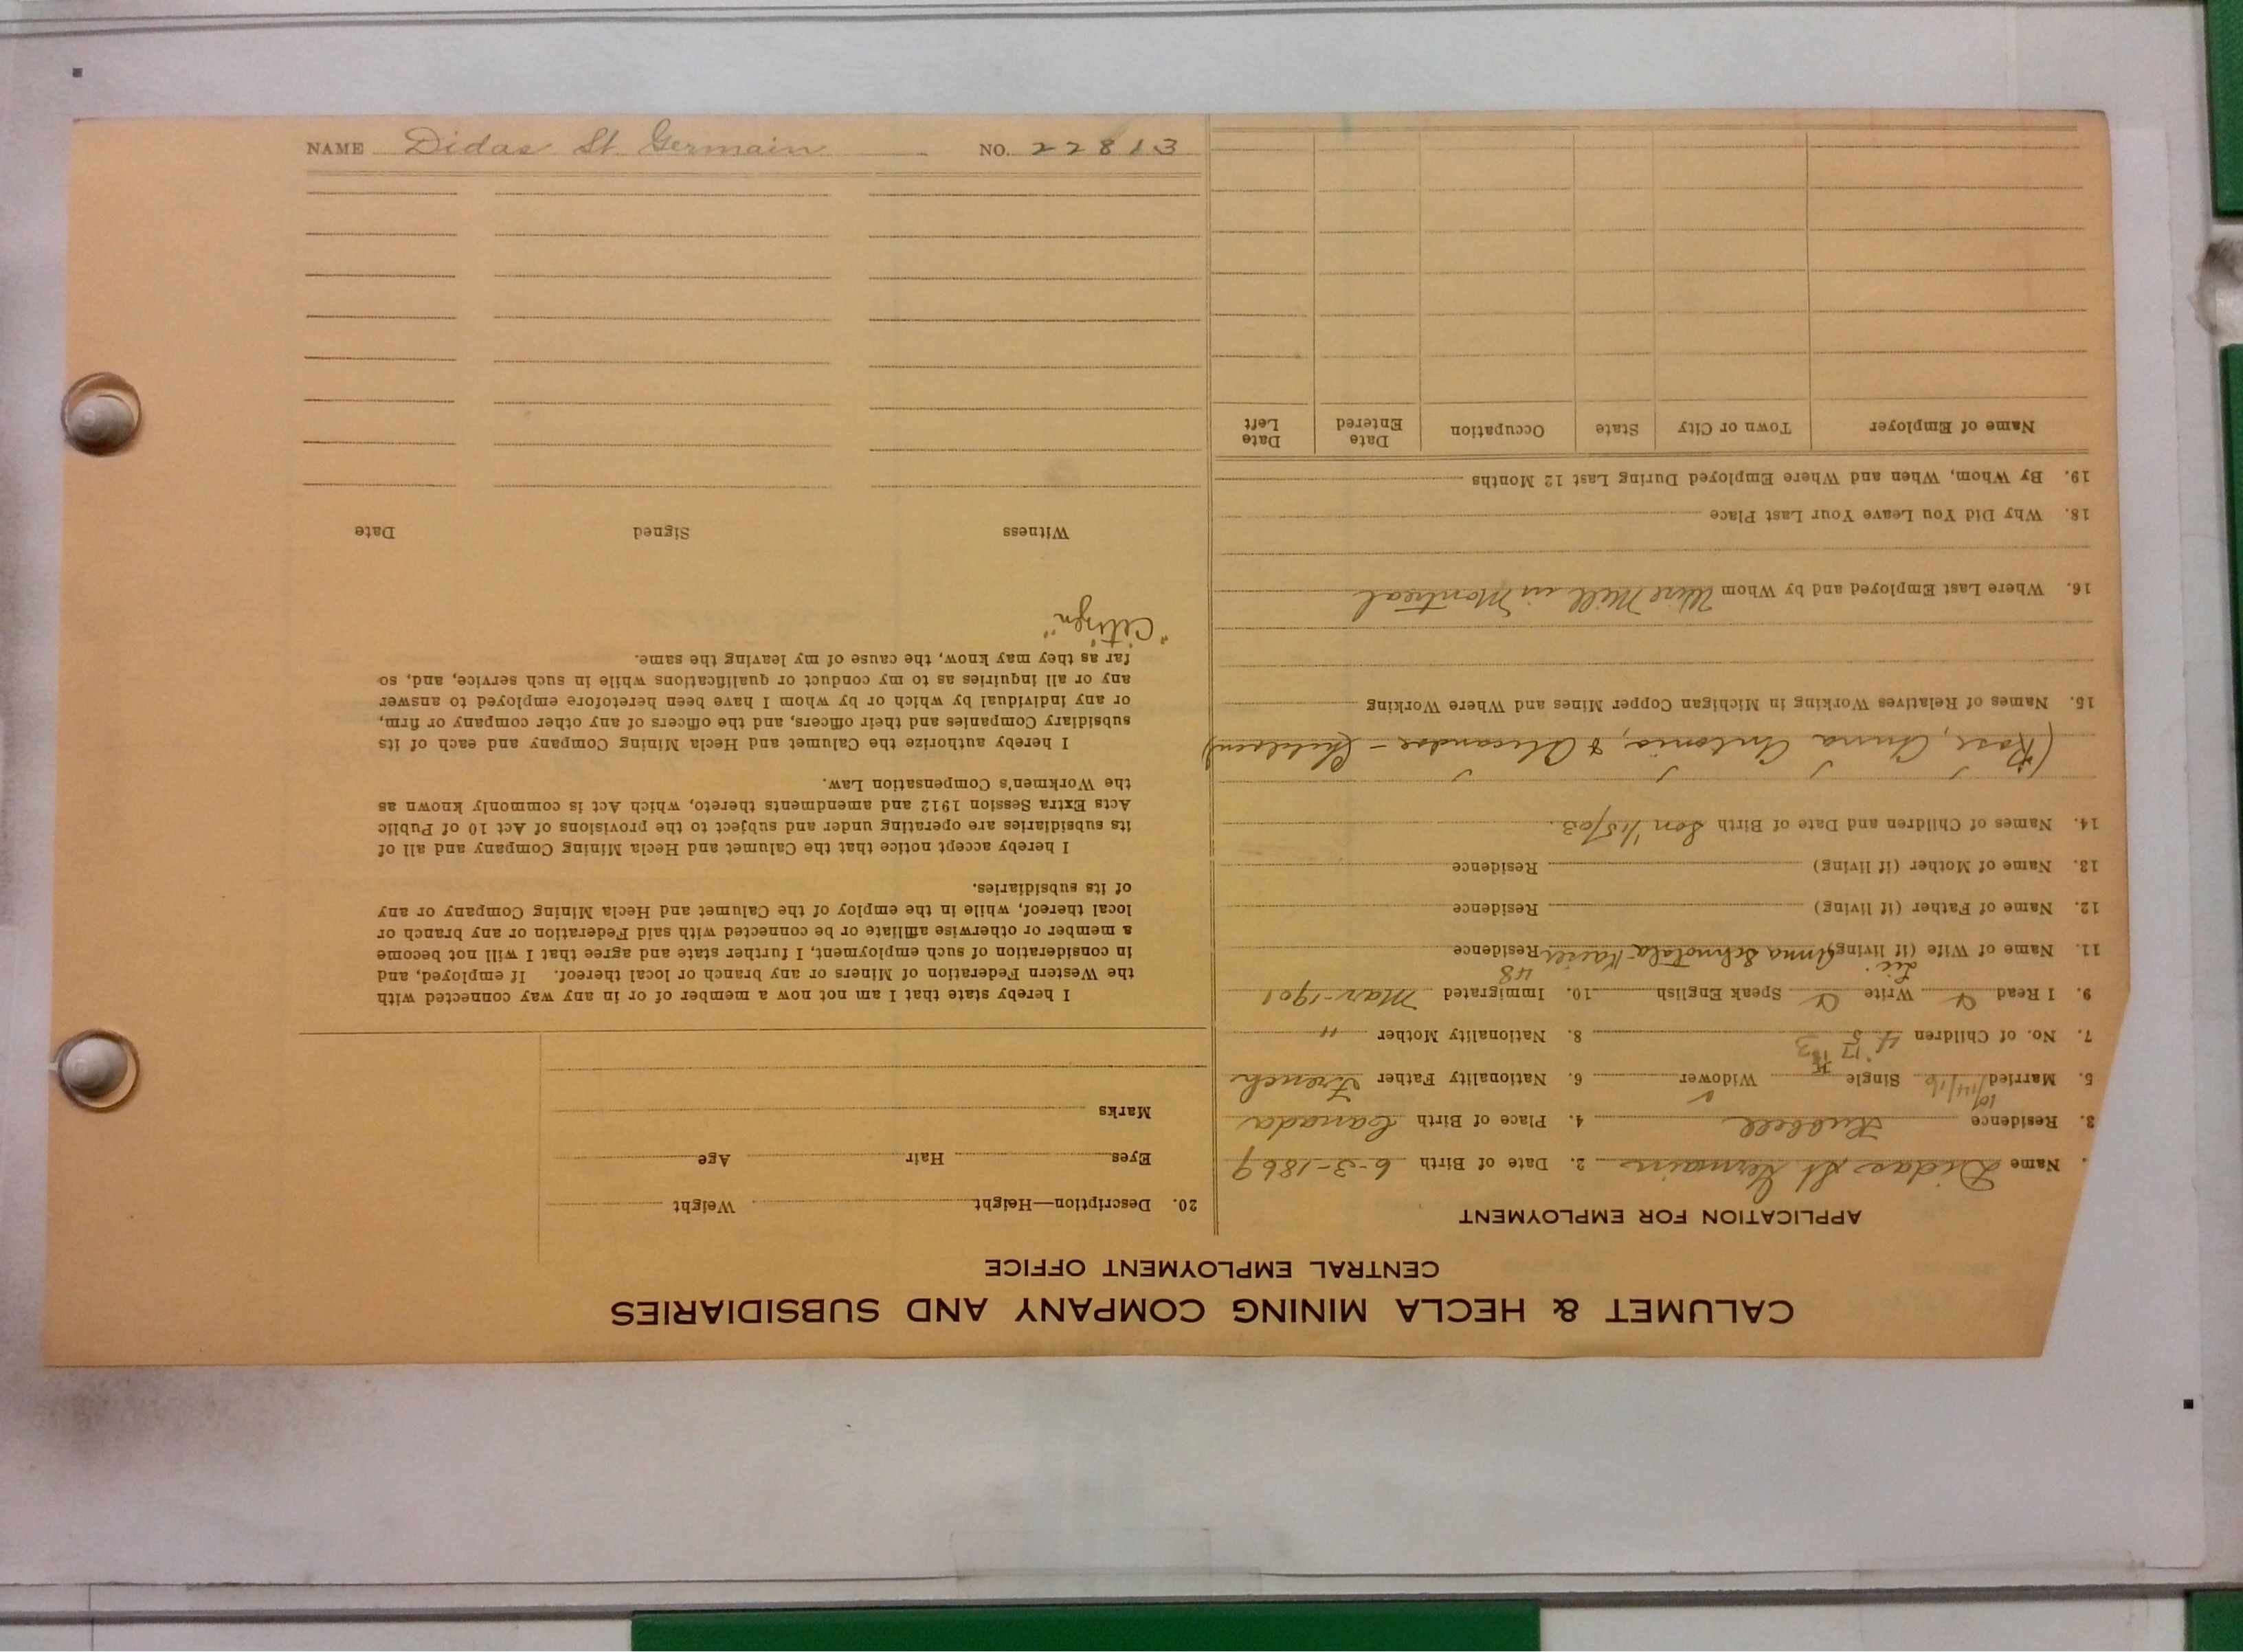 CALUMET & HECLA MINING COMPANY AND SUBSIDIARIES
CENTRAL EMPLOYMENT OFFICE
APPLICATION FOR EMPLOYMENT
. Name Didas St Germain 2. Date of Birth 6-3-1869
3. Residence Hubbell 4. Place of Birth Canada
5. Married 10/14/16 Single Widower ✓ 6. Nationality Father French
7. No. of Children 4 5 17 8. Nationality Mother "
9. I Read Write Speak English 10. Immigrated Mar-1901
Lic. 48
11. Name of Wife (if living) Anna Residence
12. Name of Father (if living) Residence
13. Name of Mother (if living) Residence
14. Names of Children and Date of Birth Son 1/15/03.
(Rose, Anna Antonio, & Alicandre - Children)
15. Names of Relatives Working in Michigan Copper Mines and Where Working
16. Where Last Employed and by Whom Wire Mill in Montreal
18. Why Did You Leave Your Last Place
19. By Whom, When and Where Employed During Last 12 Months
Name of Employer Town or City State Occupation Date Entered Date Left
20. Description—Height Weight
Eyes Hair Age
Marks
I hereby state that I am not now a member of or in any way connected with
the Western Federation of Miners or any branch or local thereof. If employed, and
in consideration of such employment, I further state and agree that I will not become
a member or otherwise affiliate or be connected with said Federation or any branch or
local thereof, while in the employ of the Calumet and Hecla Mining Company or any
of its subsidiaries.
I hereby accept notice that the Calumet and Hecla Mining Company and all of
its subsidiaries are operating under and subject to the provisions of Act 10 of Public
Acts Extra Session 1912 and amendments thereto, which Act is commonly known as
the Workmen's Compensation Law.
I hereby authorize the Calumet and Hecla Mining Company and each of its
subsidiary Companies and their officers, and the officers of any other company or firm,
or any individual by which or by whom I have been heretofore employed to answer
any or all inquiries as to my conduct or qualifications while in such service, and, so
far as they may know, the cause of my leaving the same.
"Citizen"
Witness Signed Date
NAME Didas St Germain NO. 22813